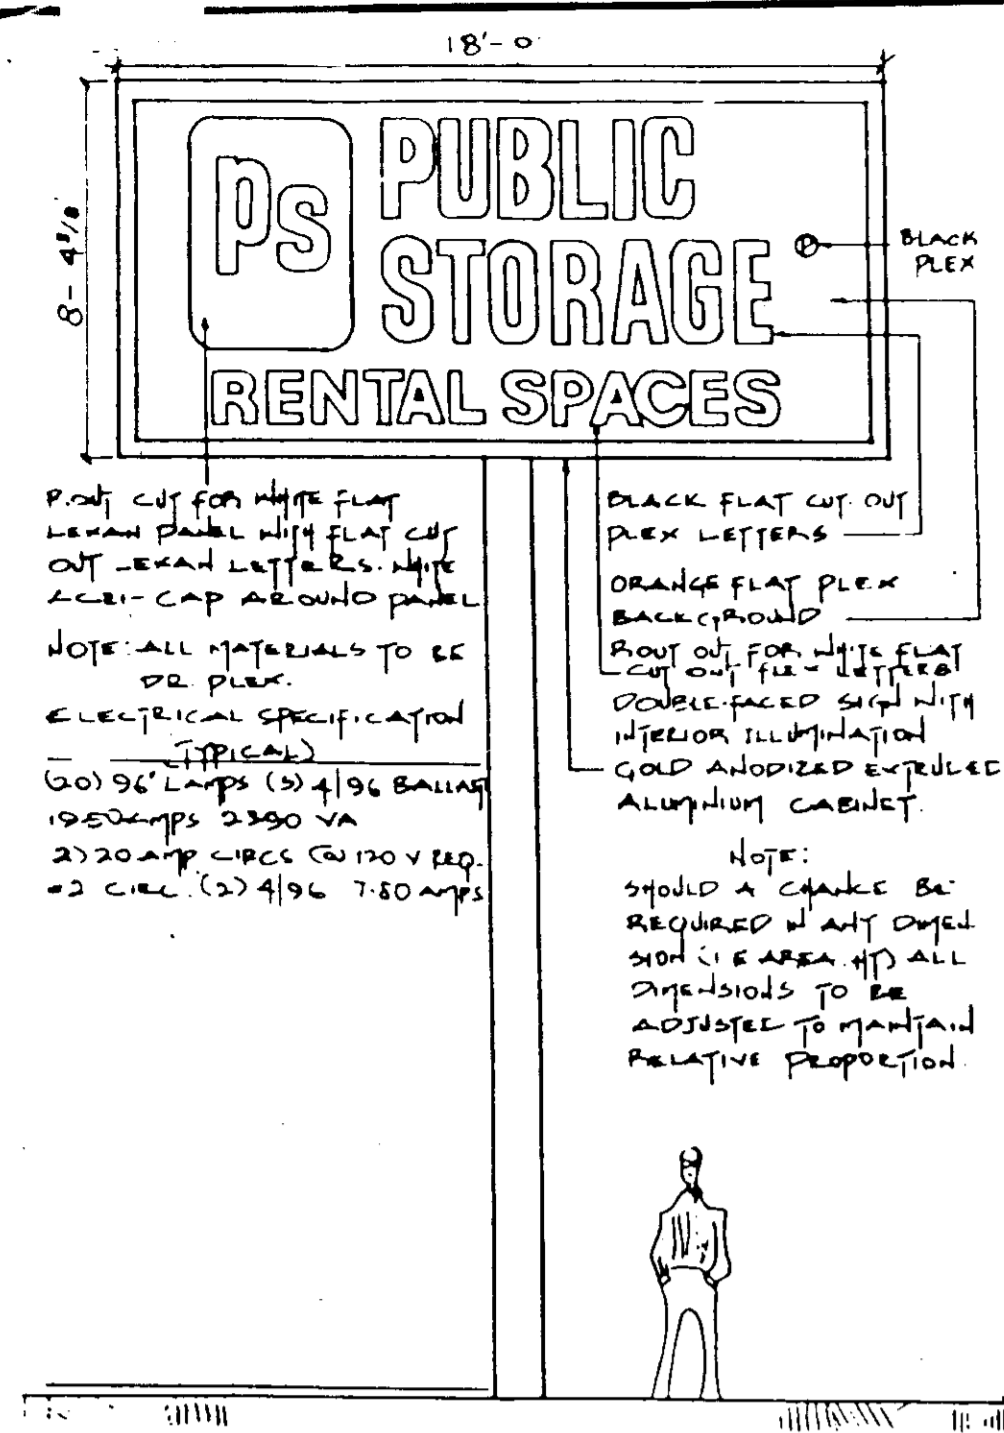 18'-0"
8-4 1/8"
ps
PUBLIC
STORAGE
RENTAL SPACES
BLACK
PLEX
R.OUT CUT FOR WHITE FLAT
LEXAN PANEL WITH FLAT CUT
OUT LEXAN LETTERS. WHITE
ACRI-CAP AROUND PANEL
NOTE: ALL MATERIALS TO BE
DR. PLEX.
ELECTRICAL SPECIFICATION
(TYPICAL)
(20) 96" LAMPS (5) 4/96 BALLAST
19.50 AMPS 2390 VA
2) 20 AMP CIRCS @ 120 V REQ.
#2 CIRC. (2) 4/96 7.80 AMPS
BLACK FLAT CUT OUT
PLEX LETTERS
ORANGE FLAT PLEX
BACKGROUND
ROUT OUT FOR WHITE FLAT
CUT OUT PLEX LETTERS
DOUBLE-FACED SIGN WITH
INTERIOR ILLUMINATION
GOLD ANODIZED EXTRUDED
ALUMINIUM CABINET.
NOTE:
SHOULD A CHANGE BE
REQUIRED IN ANY DIMEN
SION (I E AREA. HT) ALL
DIMENSIONS TO BE
ADJUSTED TO MANTAIN
RELATIVE PROPORTION.